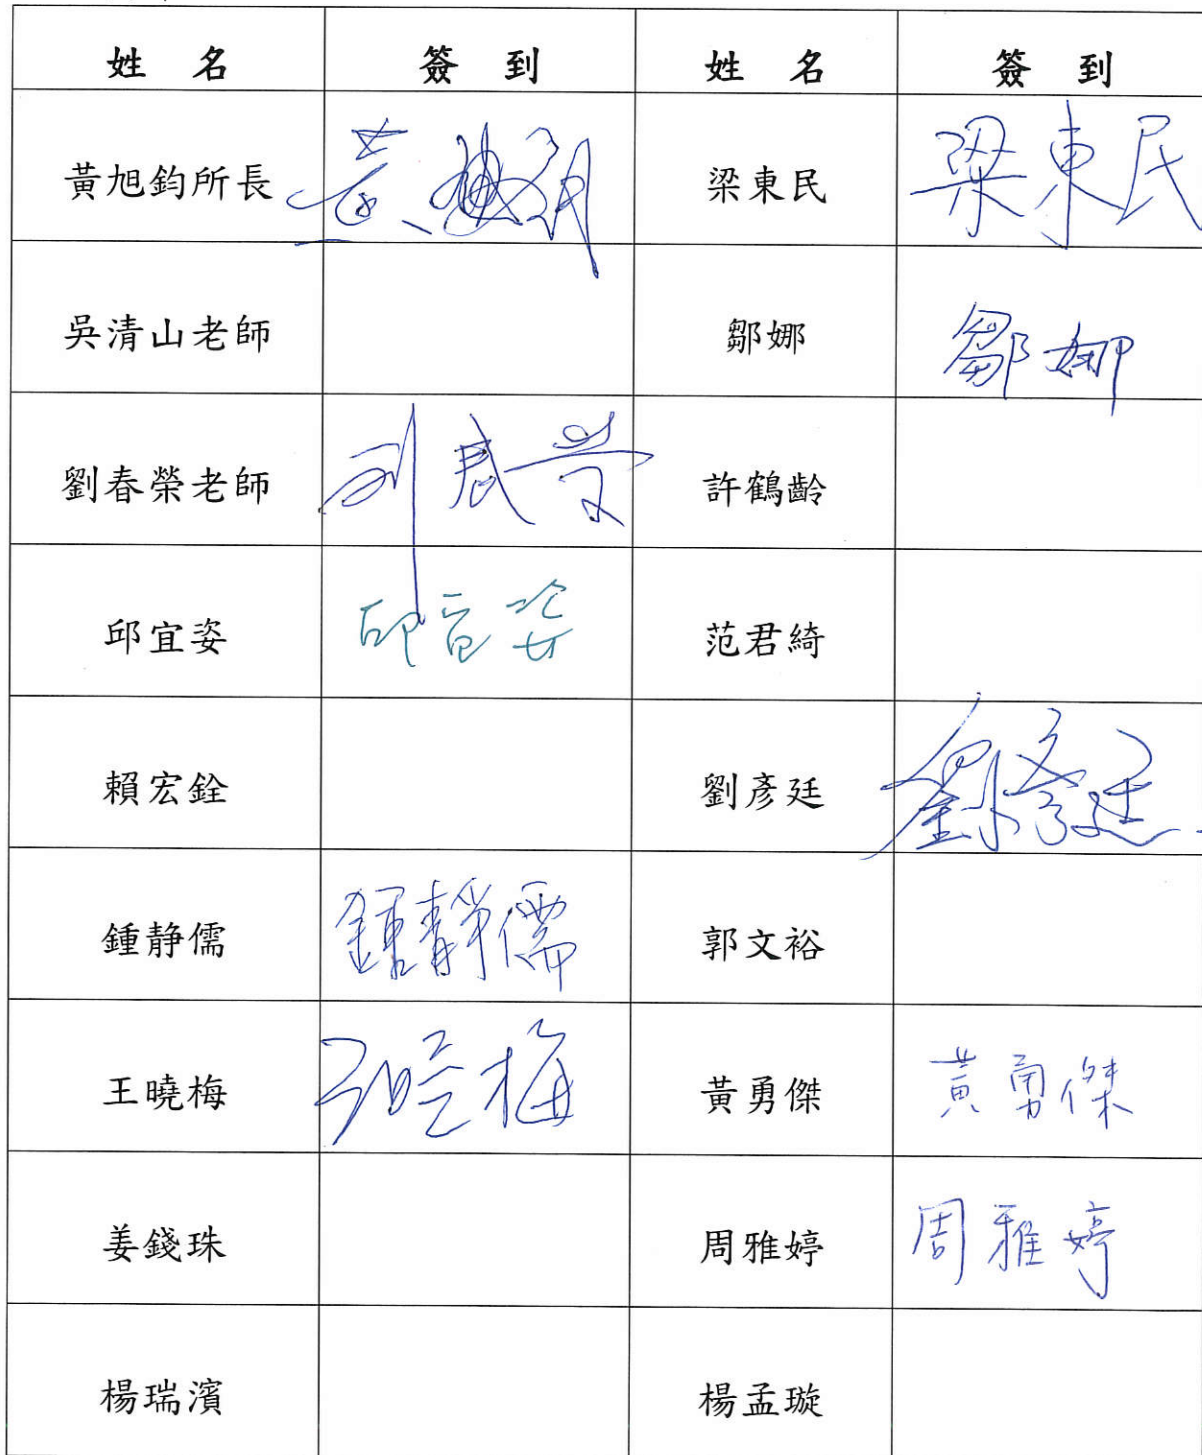 姓 名 簽 到 姓 名 簽 到
黃旭鈞所長 黃旭鈞 梁東民 梁東民
吳清山老師 鄒娜 鄒娜
劉春榮老師 刘春荣 許鶴齡
邱宜姿 邱宜姿 范君綺
賴宏銓 劉彥廷 劉彥廷
鍾静儒 鍾靜儒 郭文裕
王曉梅 王曉梅 黃勇傑 黃勇傑
姜錢珠 周雅婷 周雅婷
楊瑞濱 楊孟璇